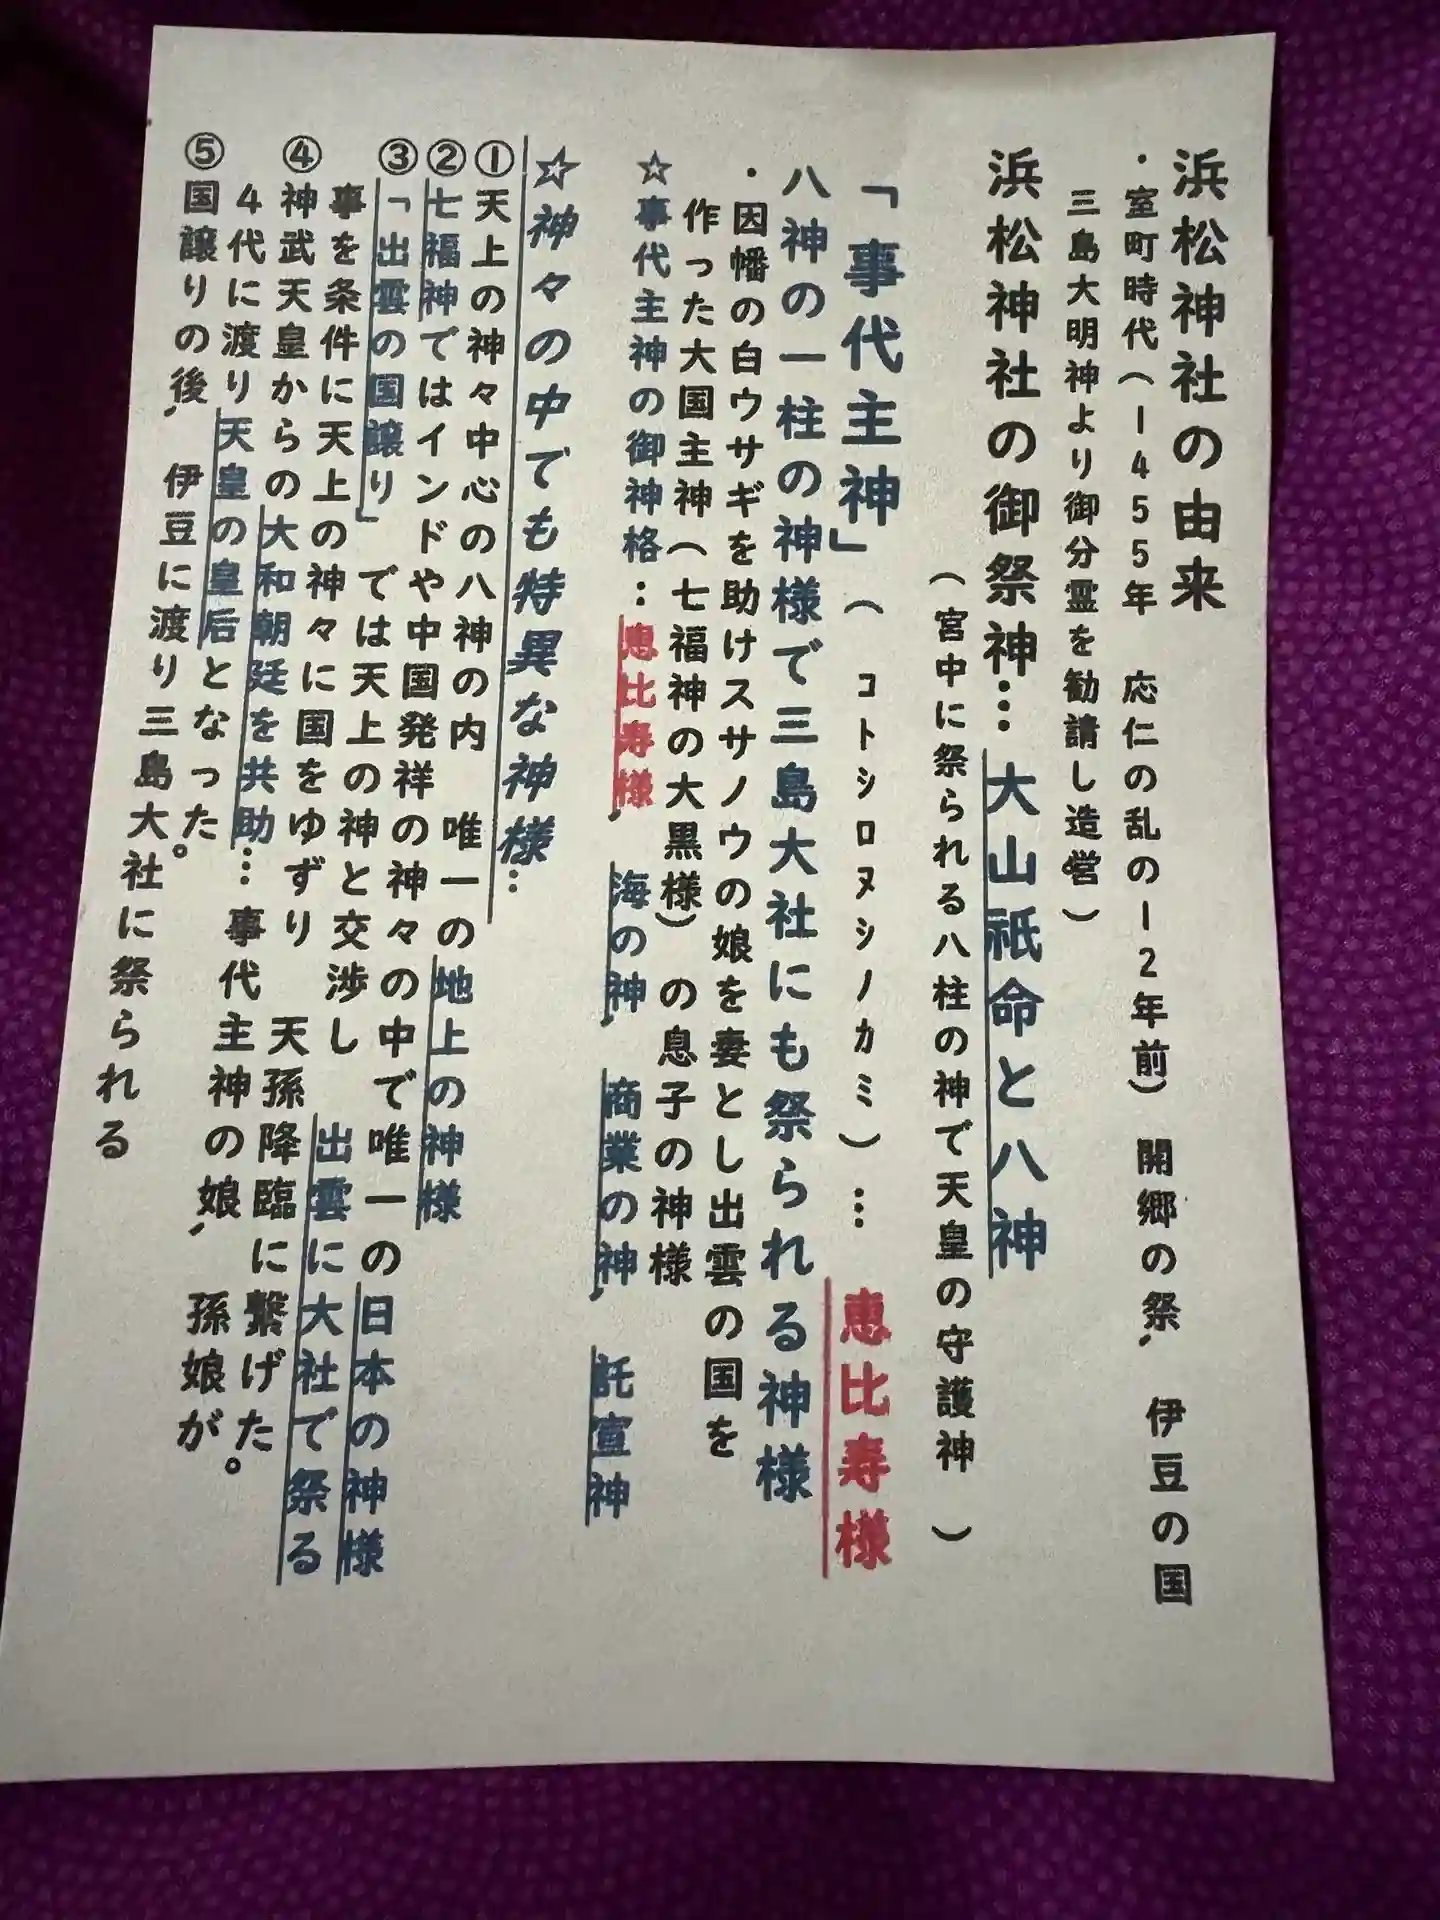 浜松神社の由来
・室町時代(1455年 応仁の乱の12年前) 開郷の祭、 伊豆の国
三島大明神より御分霊を勧請し造営)
浜松神社の御祭神…大山祇命と八神
(宮中に祭られる八柱の神で天皇の守護神 )
「事代主神」( コトシロヌシノカミ )… 恵比寿様
八神の一柱の神様で三島大社にも祭られる神様
・因幡の白ウサギを助けスサノウの娘を妻とし出雲の国を
作った大国主神(七福神の大黒様) の息子の神様
☆事代主神の御神格…恵比寿様、 海の神、 商業の神、 託宣神
☆神々の中でも特異な神様…
①天上の神々中心の八神の内 唯一の地上の神様
②七福神ではインドや中国発祥の神々の中で唯一の日本の神様
③「出雲の国譲り」では天上の神と交渉し 出雲に大社で祭る
事を条件に天上の神々に国をゆずり 天孫降臨に繋げた。
④神武天皇からの大和朝廷を共助…事代主神の娘、 孫娘が
4代に渡り天皇の皇后となった。
⑤国譲りの後、 伊豆に渡り三島大社に祭られる